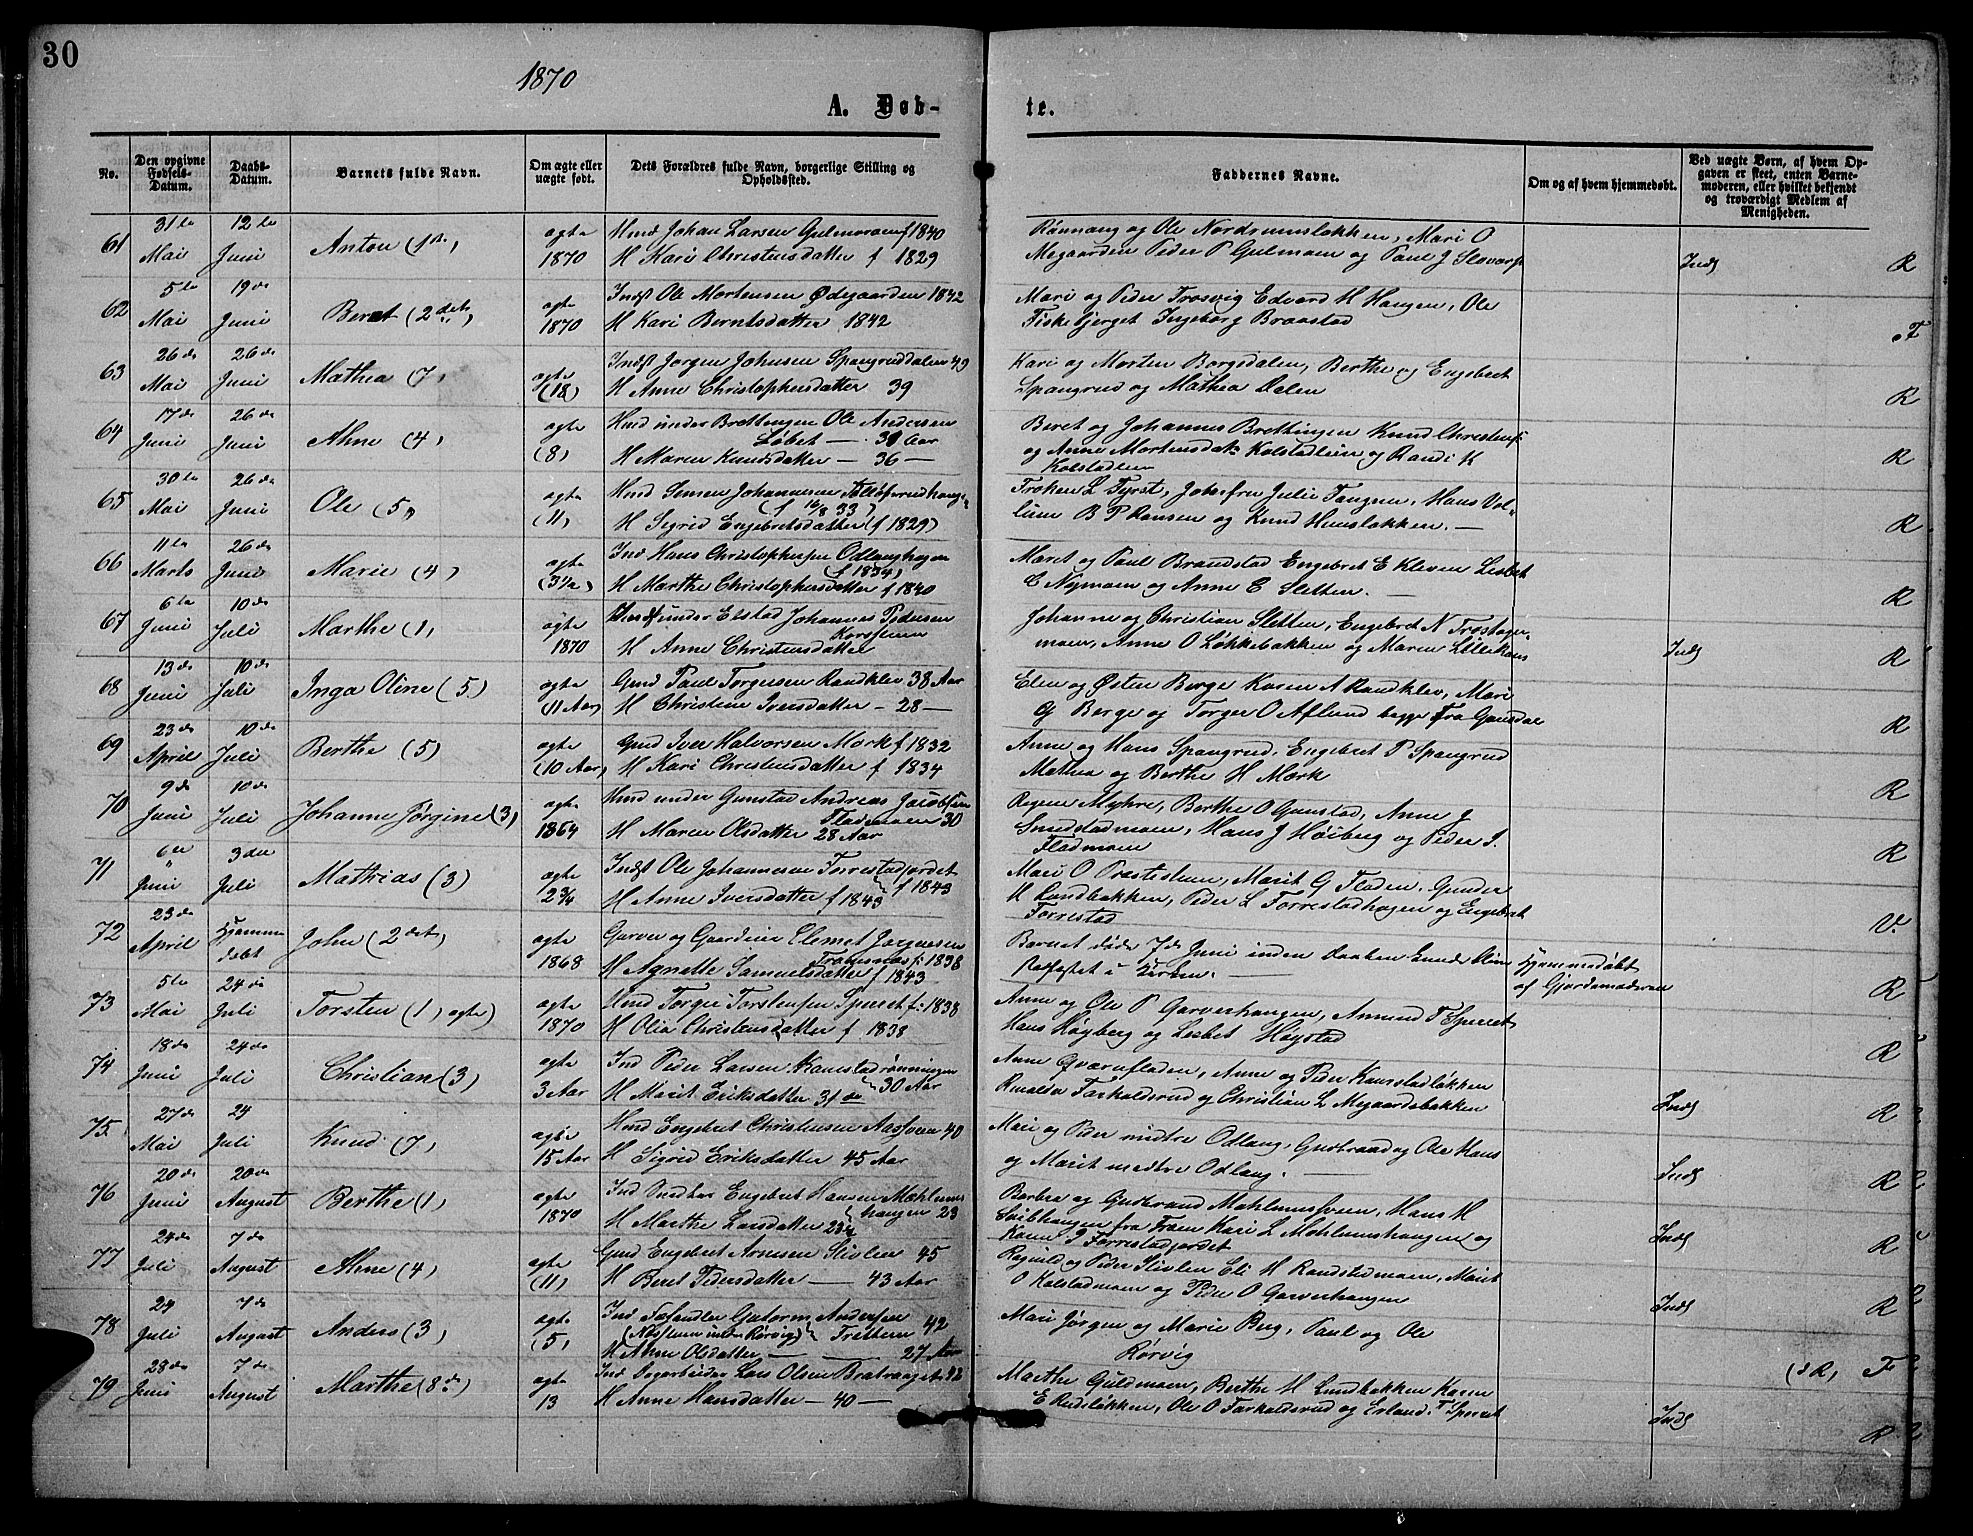 30
1870
A. Døb-
te.
No.
Den opgivne Fødsels-Datum.
Daabs-Datum.
Barnets fulde Navn.
Om ægte eller uægte født.
Dets Forældres fulde Navn, borgerlige Stilling og Opholdssted.
Faddernes Navne.
Om og af hvem hjemmedøbt.
Ved uægte Børn, af hvem Opgaven er skeet, enten Barnemoderen, eller hvilket bekjendt og troværdigt Medlem af Menigheden.
61 31te Mai 12te Juni Anton (1ste) ægte 1870
Hmd Johan Larsen Gulmoren f 1840
H Kari Christensdatter f 1829
Rønnaug og Ole Nordrumsløkken, Mari O
Megaarden Peder P Gulmoen og Paul J
Inds R
62 5te Mai 19de Juni Beret (2det) ægte 1870
Indst Ole Mortensen Ødegaarden 1842
H Kari Berntsdatter 1842
Mari og Peder Trosvig Edvard H Haugen, Ole
Fiskebjerget Ingeborg Braastad
F
63 26de Mai 26de Juni Mathea (7) ægte (18)
Indst Jørgen Johnsen Spangruddalen 49
H Anne Christophersdatter 39
Kari og Morten Borgsdalen, Berthe og Engebret
Spangrud og Mathea Dalen
R
64 17de Juni 26de Juni Ahne (4) ægte (8)
Hmd under Brettingen Ole Andersen
Løbet — 31 Aar
H Maren Knudsdatter — 36 —
Beret og Johannes Brettingen Knud Christens:
og Anne Mortensdat: Kolstadlien og Randi K
Kolstadlien
R
65 30te Mai 26de Juni Ole (5) ægte (11)
Hmd Simen Johannesen
(f 16/8 33)
H Sigrid Engebretsdatter (f 1829)
Frøken L Fyrst, Jomfru Julie Tangen, Hans Vol-
lum B P Hansen og Knud Hansløkken. —
R
66 11te Marts 26de Juni Marie (4) ægte (3½)
Ind Hans Christophersen Odlaughagen
(f 1834)
H Marthe Christophersdatter f 1840
Marit og Paul Brandstad Engebret E Kleven Lisbet
E Nymoen og Anne E Sletten. —
R
67 6te Juni 10de Juli Marthe (1) ægte 1870
Hmd under Elstad Johannes Pedersen
Korsveien
H Anne Christensdatter
Johanne og Christian Sletten, Engebret N
moen, Anne O Løkkebakken og Maren Lillehaus
Inds R
68 13de Juni 10de Juli Inga Oline (5) ægte (11 Aar)
Gmd Paul Torgersen Randklev 38 Aar
H Christine Iversdatter — 28 —
Elen og Østen Berge Karen A Randklev, Mari
G Berge og Torger O Aflund begge fra Gausdal
R
69 23de April 10de Juli Berthe (5) ægte (10 Aar)
Gmd Iver Halvorsen Mork f 1832
H Kari Christensdatter f 1834
Anne og Hans Spangrud, Engebret P Spangrud
Mathea og Berthe H Mørk
R
70 9de Juni 10de Juli Johanne Jørgine (3) ægte 1864
Hmd under Gunstad Andreas Jacobsen
Fladmoen 30
H Maren Olsdatter 28 Aar
Regine Myhre, Berthe O Gunstad, Anne J
Smedstadmoen, Hans J Høiberg og Peder S.
Fladmoen
R
71 6te Juni 3die Juli Mathias (3) ægte 2¾
Indst Ole Johannesen Forrestadjordet
f 1843
H Anne Iversdatter f 1843
Mari O Præstesteen, Marit G Fladen, Gunder
H Lundbakken, Peder L Forrestadhagen og Engebret
Forrestad
V.
72 23de April Hjemmedøbt John (2det) ægte 1868
Garver og Gaardeier Clemet Jørgensen
Tromsnæs f: 1836
H Agnette Samuelsdatter f 1843
Barnet døde 7de Juni inden Daaben kunde blive
stadfæstet i Kirken. —
Hjemmedøbt
af Gjordemoderen
R
73 5te Mai 24de Juli Torsten (1, ægte) ægte 1870
Hmd Torger Torstensen Sperret f: 1838
H Olia Christensdatter f 1838
Anne og Ole P Garverhaugen, Amund T Sperret
Hans Høyberg og Lisbet Høystad
R
74 18de Juni 24de Juli Christian (3) ægte 3 Aar
Ind Peder Larsen Kanestadrønningen
30 Aar
H Marit Eriksdatter 31 do
Anne Qværnfladen, Anne og Peder Kanestadløkken
Farkaldsrud og Christian L Megaardsbakken
Inds R
75. 27de Mai 24 Juli Knud (7) ægte 15 Aar
Hmd Engebret Christensen Aassveen 40
H Sigrid Eriksdatter 45 Aar
Mari og Peder nedtre Odlaug, Gudbrand og Ole Hans
og Marit nedtre Odlaug. —
Inds R
76 20de Juni 20de August Berthe (1) ægte 1870
Ind Snedker Engebret Hansen Mæhlums
haugen 23
H Marthe Larsdatter 23¼
Barbra og Gudbrand Mæhlumsveen, Hans M
fra Froen Kari L Mæhlumshaugen og
Karen P Forrestadjordet
Inds R
77 24de Juli 7de August Ahne (4) ægte (11)
Gmd Engebret Arnesen Slivlen 45
H Beret Pedersdatter — 43 Aar
Ragnild og Peder Slivlen Eli H Randstadmoen, Marit
O Kolstadmoen og Peder O Garverhaugen
Inds R
78 24 Juli 7de August Anders (3) ægte (5)
Ind Guttorm Andersen 42
H Anne Olsdatter — 27 Aar
Mari Jørgen og Marie Berg, Paul og Ole
Rørvig
F
79 28de Juni 7de August Marthe (8de) ægte 13
Ind Dagarbeider Lars Olsen Bratvanget 42
H Anne Hansdatter — 40 —
Marthe Guldmoen, Berthe H Lundbakken Karen
E Rudsløkken, Ole O Farkaldsrud og Erland T Sperret
Inds R